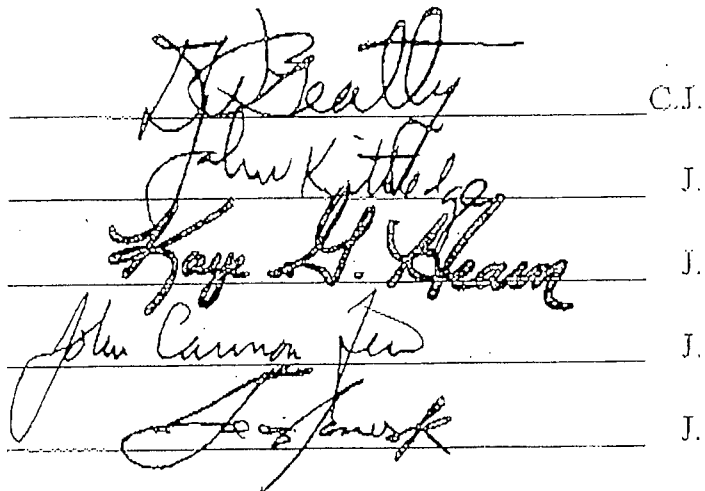 D. Beatty C.J.
John Kittredge J.
Kaye G. Hearn J.
John Cannon Few J.
J.